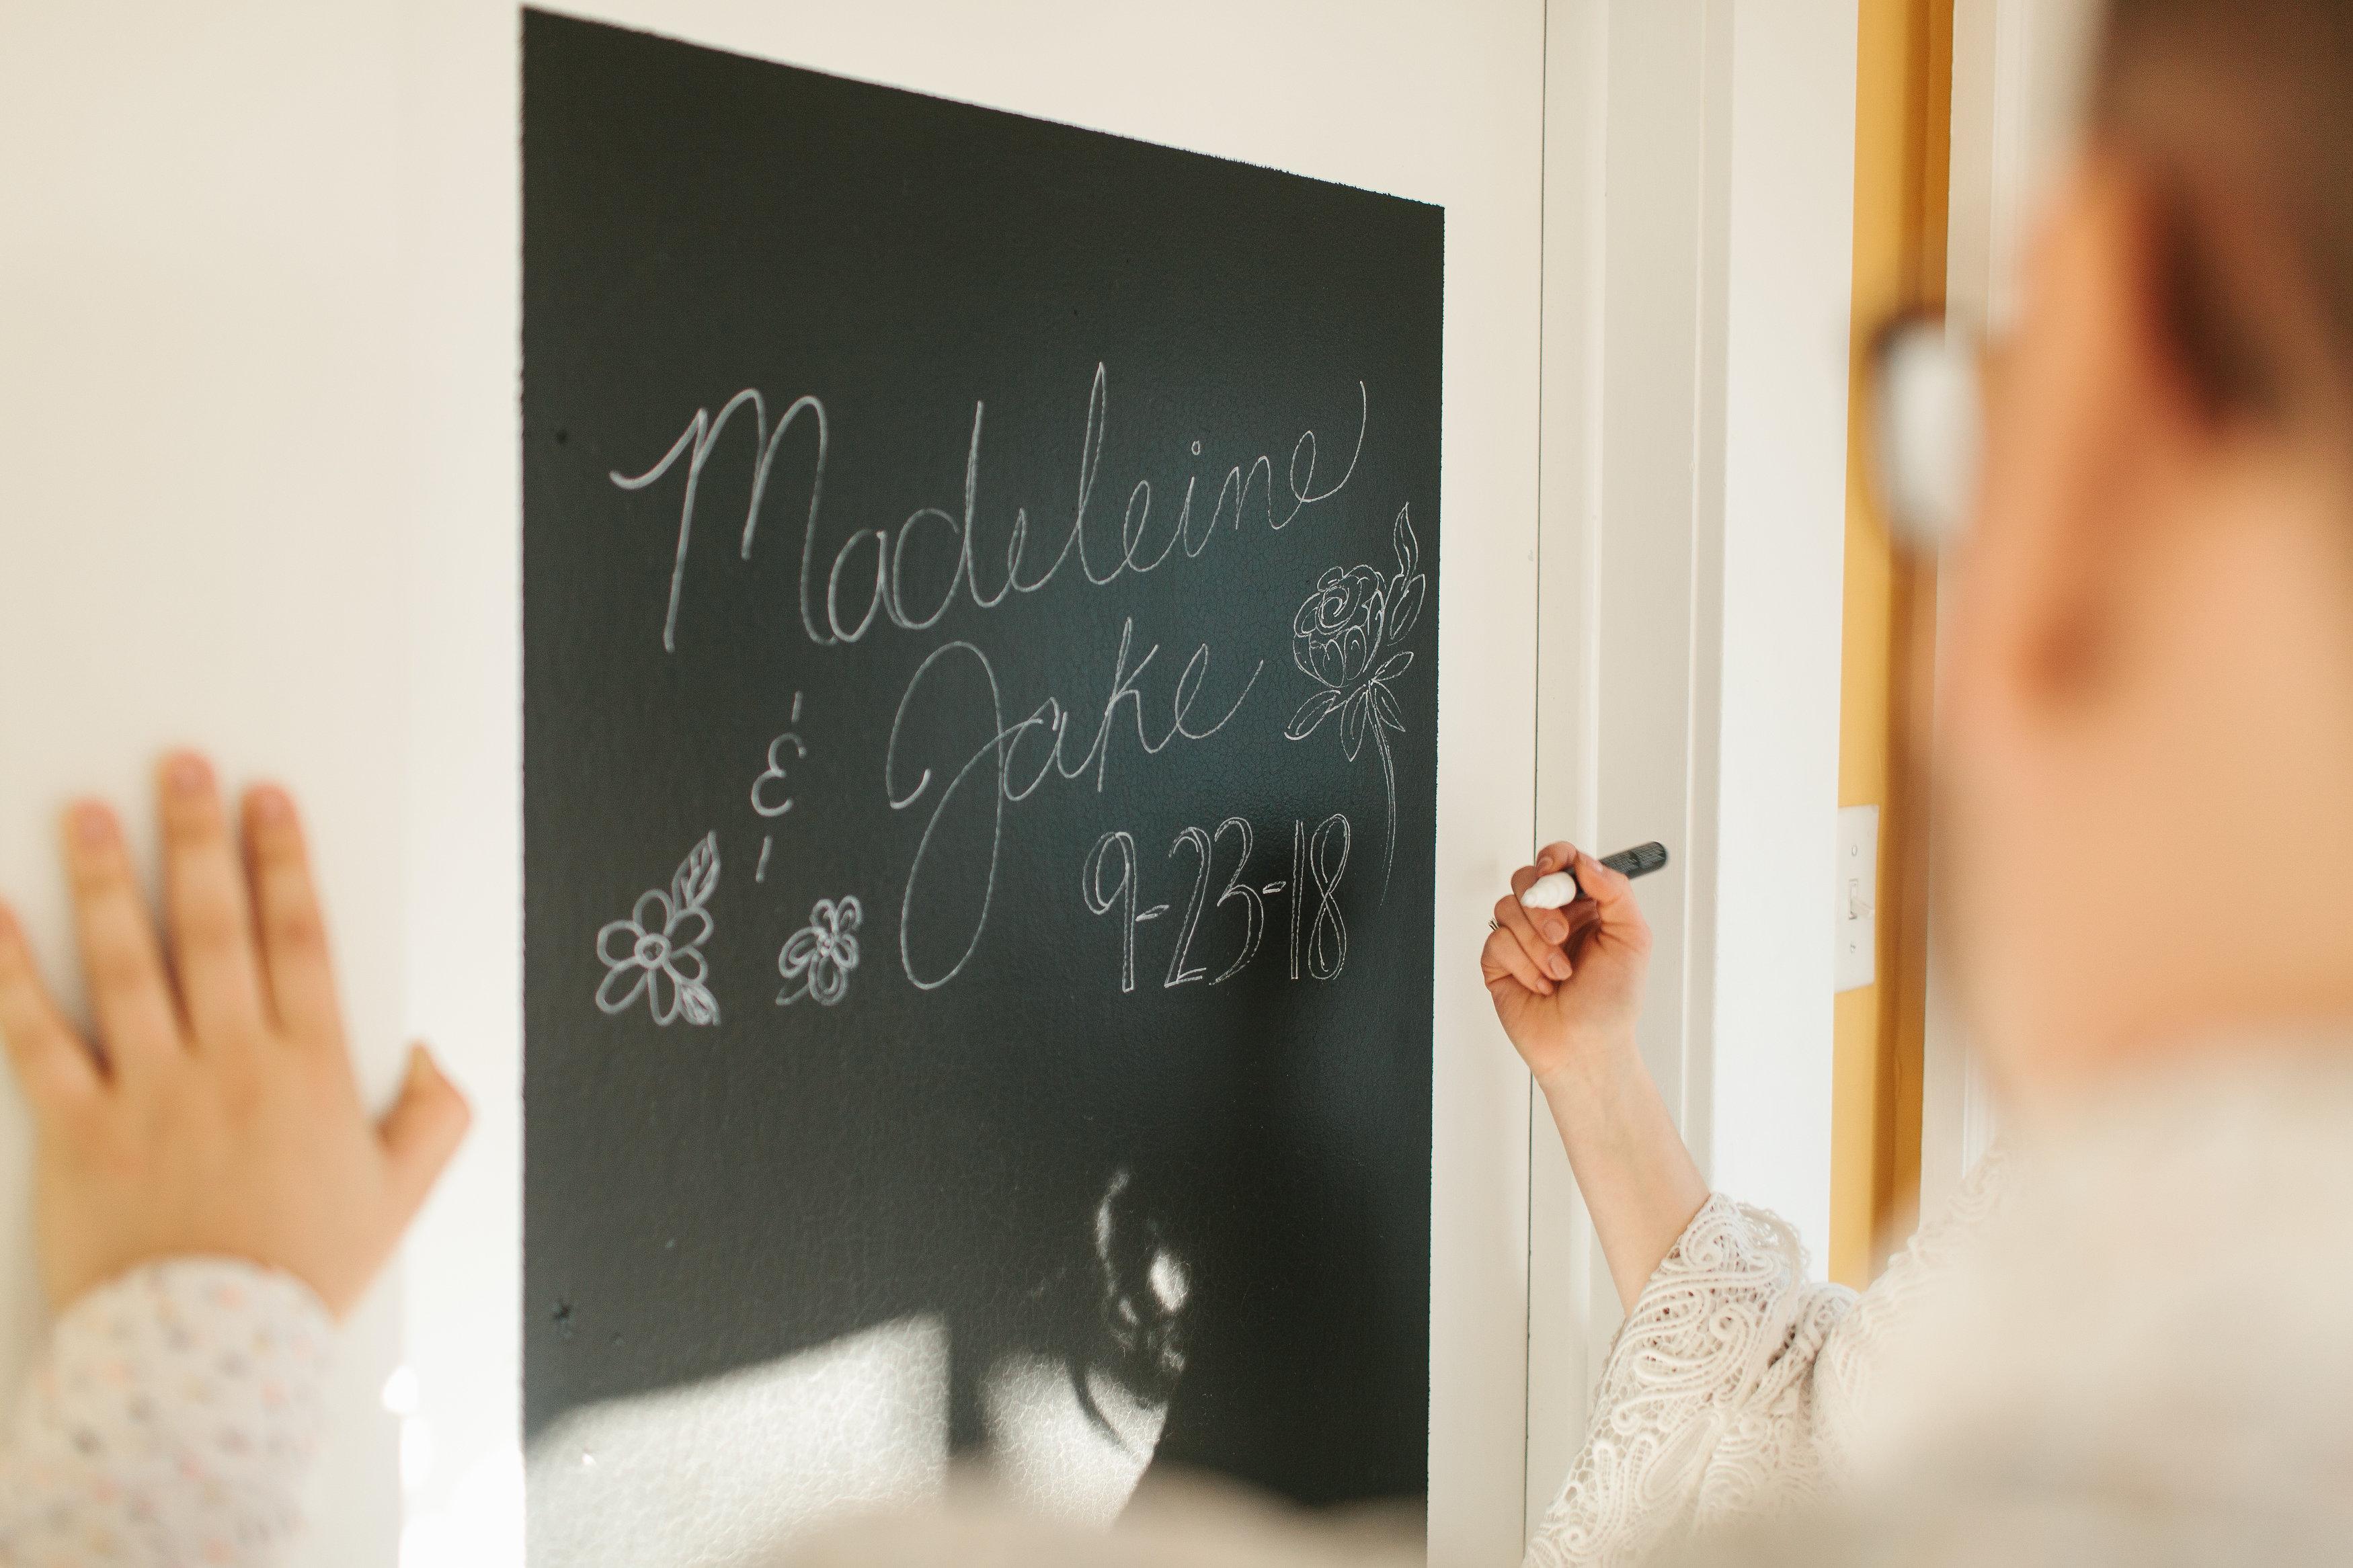 Madeleine
& Jake
9-23-18